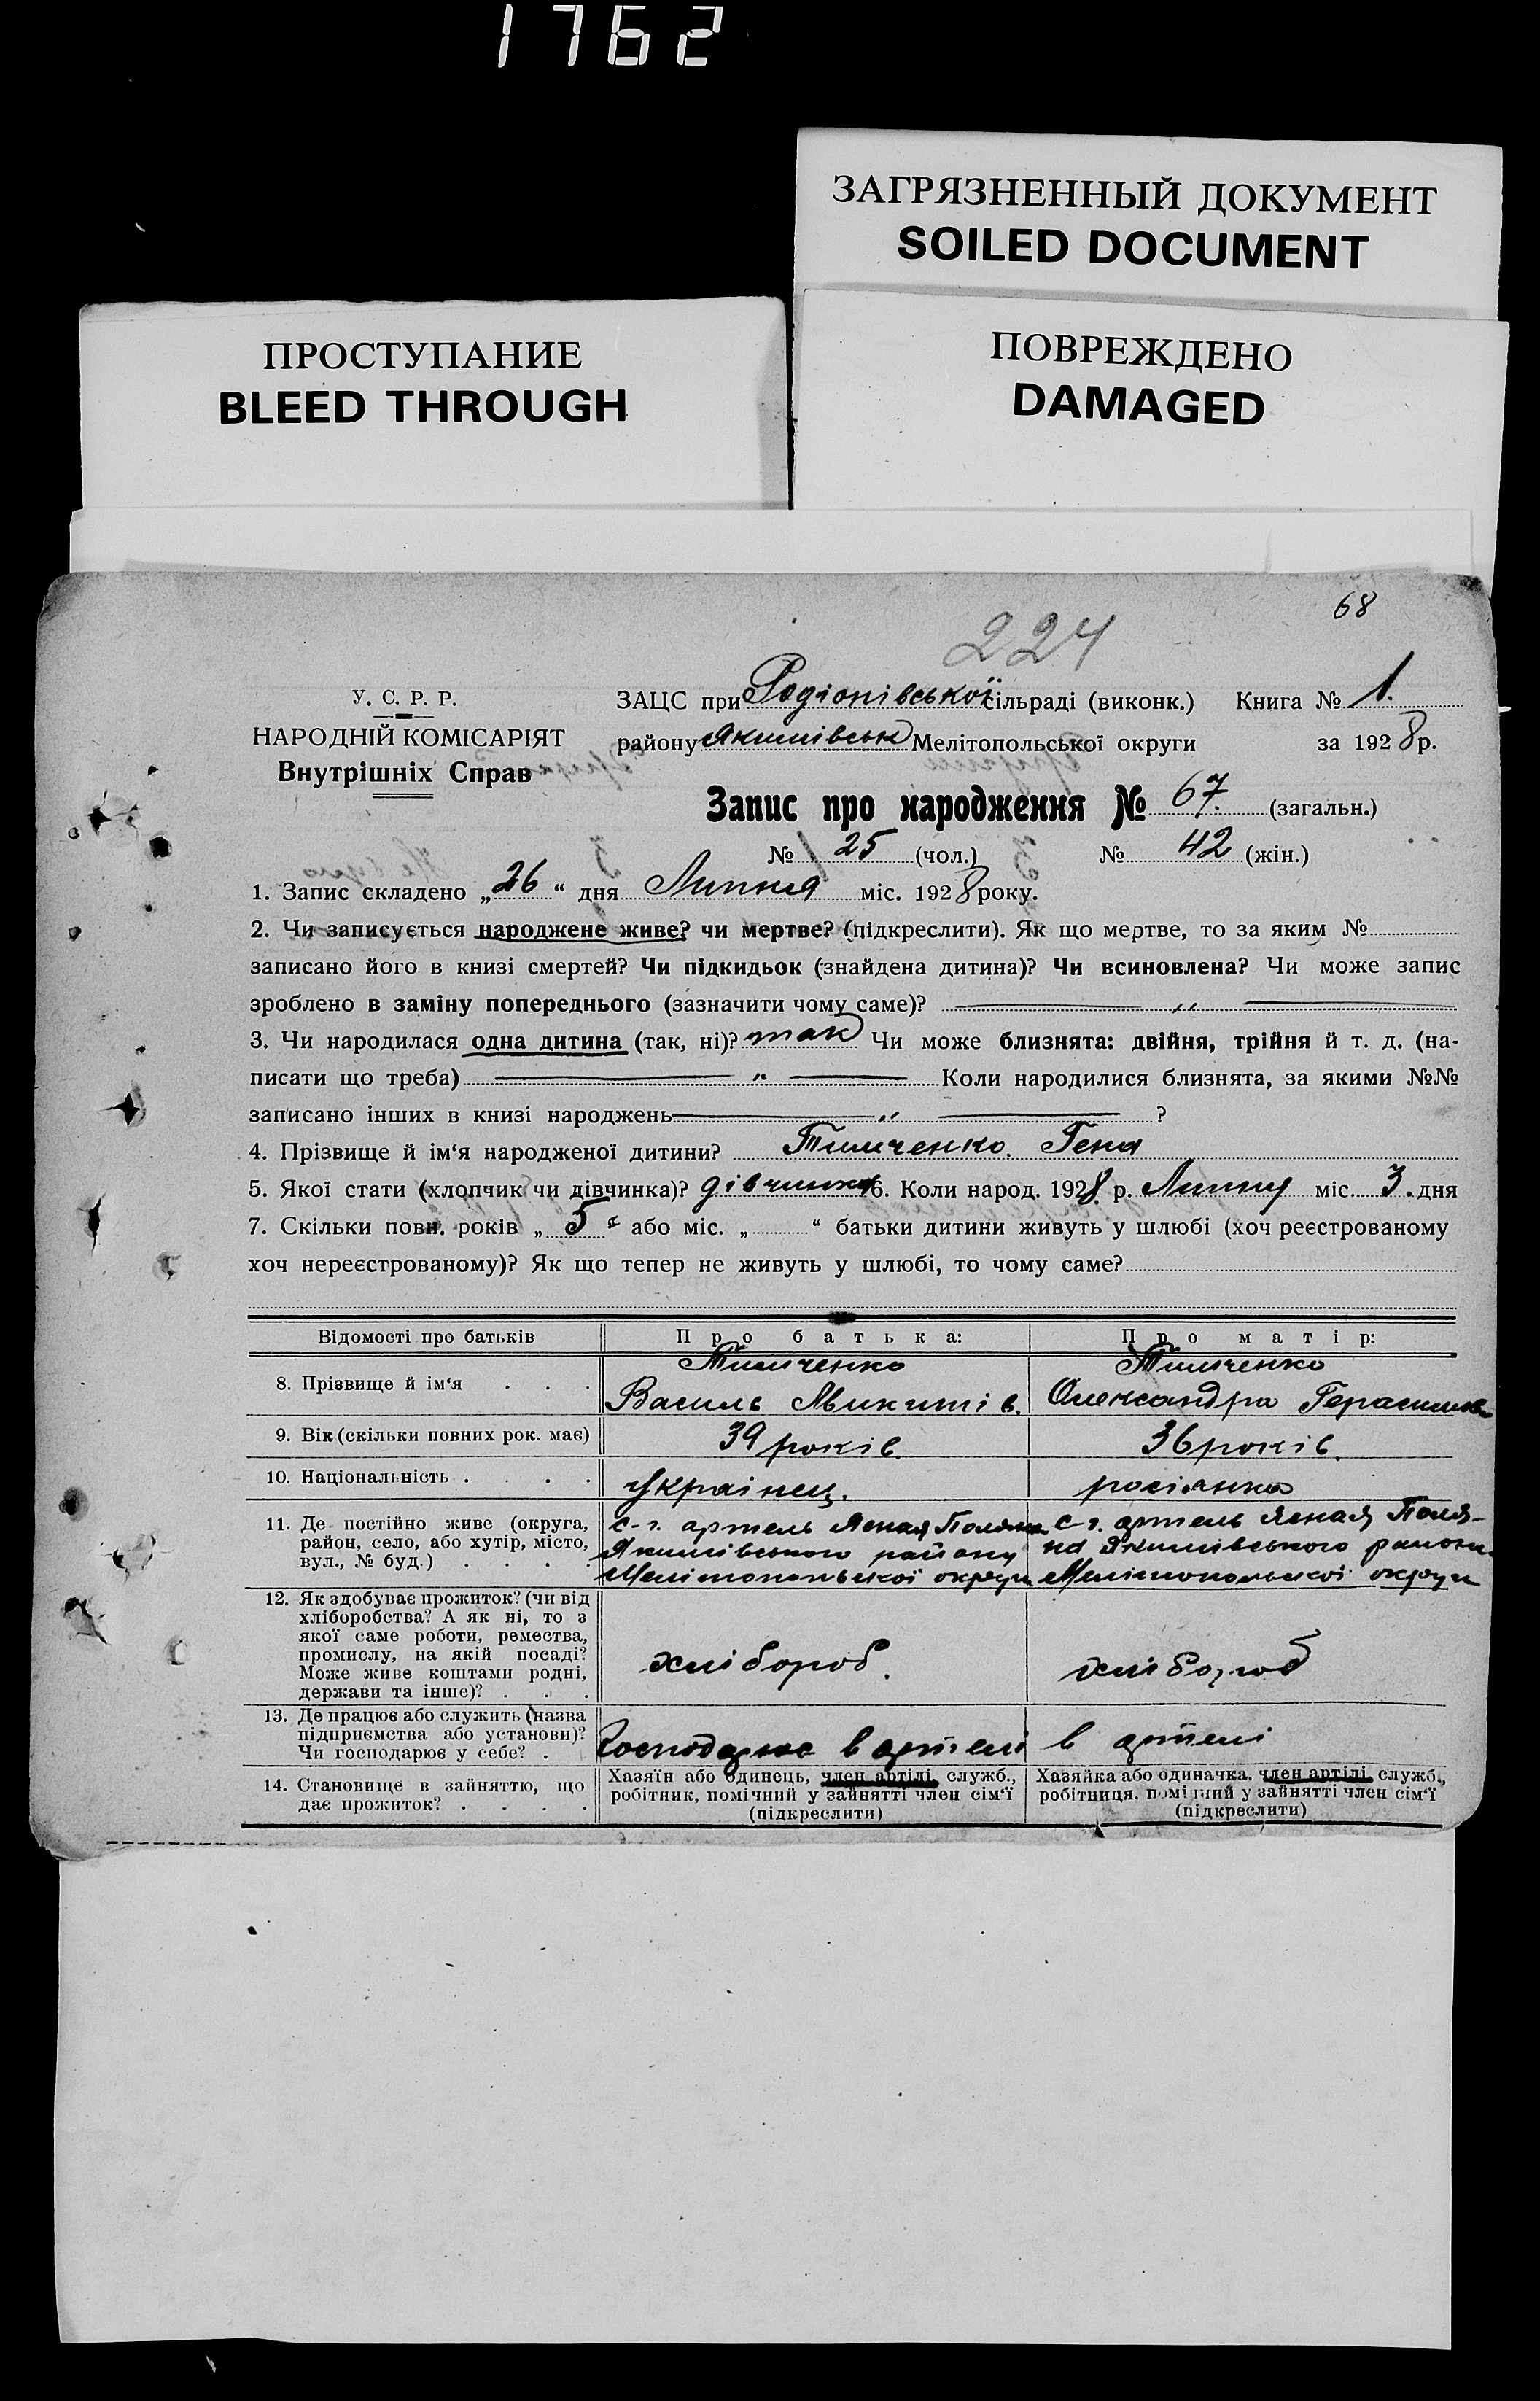 1762
ЗАГРЯЗНЕННЫЙ ДОКУМЕНТ
SOILED DOCUMENT
ПРОСТУПАНИЕ
BLEED THROUGH
ПОВРЕЖДЕНО
DAMAGED
68
224
У. С. Р. Р.
НАРОДНІЙ КОМІСАРІЯТ
Внутрішніх Справ
ЗАЦС при Родіонівської сільраді (виконк.) Книга № 1.
району Якимівськ Мелітопольської округи за 1928 р.
Запис про народження № 67. (загальн.)
№ 25 (чол.) № 42 (жін.)
1. Запис складено „26“ дня Липня міс. 1928 року.
2. Чи записується народжене живе? чи мертве? (підкреслити). Як що мертве, то за яким №
записано його в книзі смертей? Чи підкидьок (знайдена дитина)? Чи всиновлена? Чи може запис
зроблено в заміну попереднього (зазначити чому саме)? — „ —
3. Чи народилася одна дитина (так, ні)? так Чи може близнята: двійня, трійня й т. д. (на-
писати що треба) — „ — Коли народилися близнята, за якими №№
записано інших в книзі народжень — „ — ?
4. Прізвище й ім‘я народженої дитини? Тимченко. Гена
5. Якої стати (хлопчик чи дівчинка)? дівчинка 6. Коли народ. 1928 р. Липня міс. 3. дня
7. Скільки повн. років „ 5 “ або міс. „ “ батьки дитини живуть у шлюбі (хоч реєстрованому
хоч нереєстрованому)? Як що тепер не живуть у шлюбі, то чому саме?
Відомості про батьків Про батька: Про матір:
8. Прізвище й ім‘я . . . Тимченко Василь Микитів. Тимченко Олександра Герасимов
9. Вік (скільки повних рок. має) 39 років. 36 років.
10. Національність . . . . Українец. росіянка
11. Де постійно живе (округа, район, село, або хутір, місто, вул., № буд.) . . . . с-г. артель Ясная Поляна Якимівського району Мелітопольскої округи с-г. артель Ясная Поля-на Якимівського району Мелітопольскої округи
12. Як здобуває прожиток? (чи від хліборобства? А як ні, то з якої саме роботи, ремества, промислу, на якій посаді? Може живе коштами родні, держави та інше)? . . . хлібороб. хлібороб
13. Де працює або служить (назва підприємства або установи)? Чи господарює у себе? . Господарює в артелі в артелі
14. Становище в зайняттю, що дає прожиток? . . . . Хазяїн або одинець, член артілі, служб., робітник, помічний у зайнятті член сім‘ї (підкреслити) Хазяйка або одиначка, член артілі, служб., робітниця, помічний у зайнятті член сім‘ї (підкреслити)